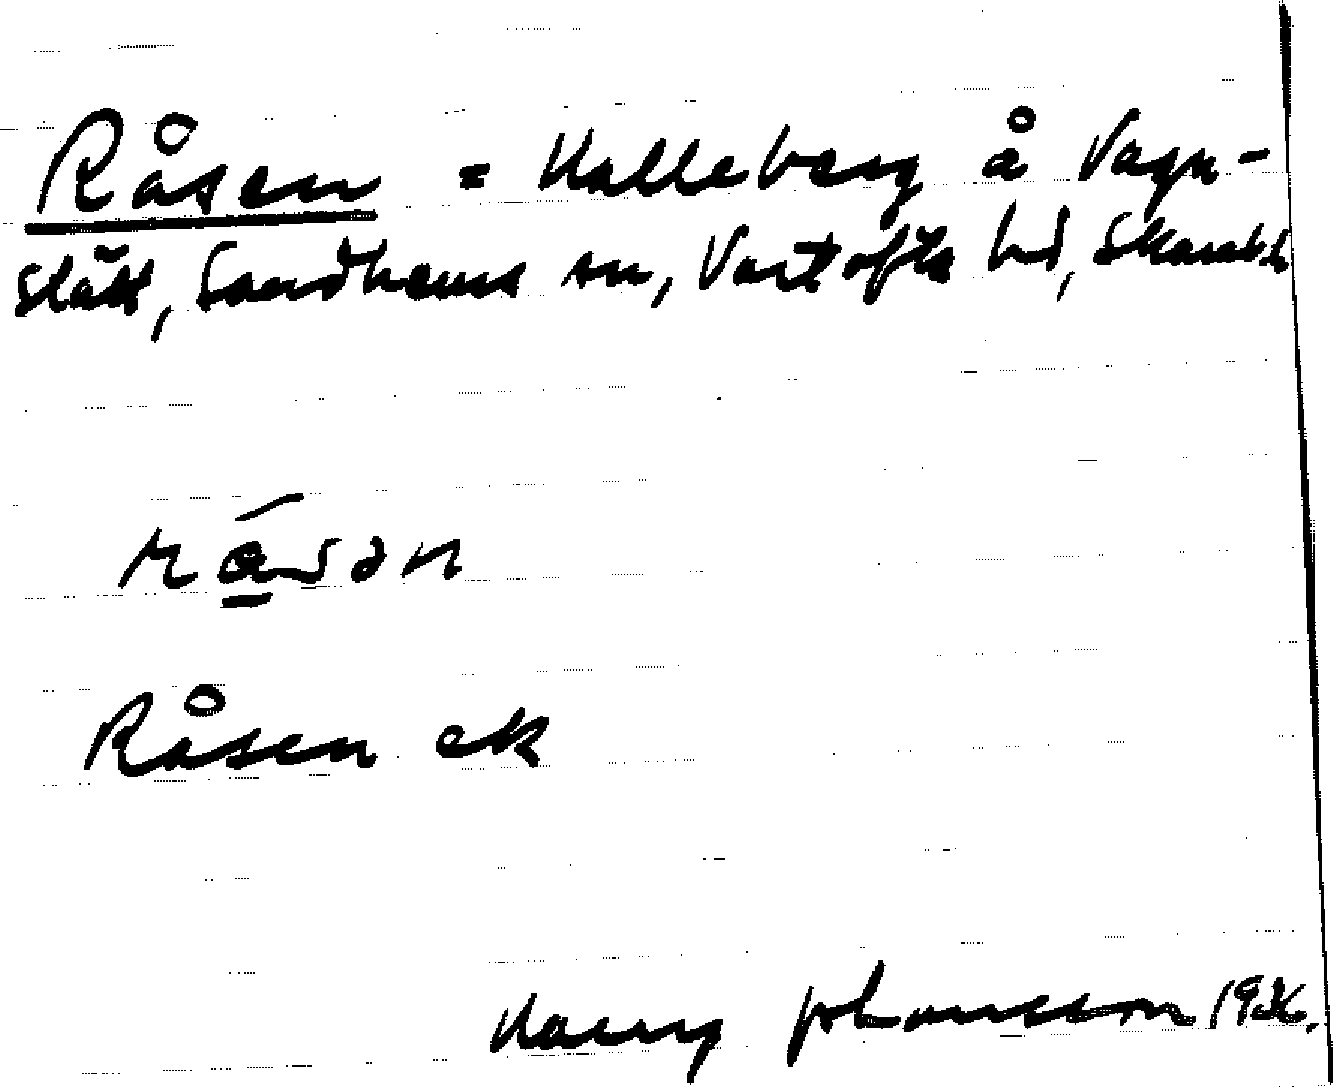 Råsen = Halleberg å Vagn-
slätt, Sandhems sn, Vartofta hd, Skarab.l.
Råsen ek
Harry Johansson 1936.